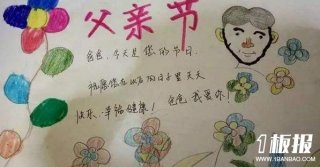 父亲节
爸爸，今天是您的节日，
祝愿您在以后的日子里天天
快乐、幸福健康！爸爸我爱你！
1板报
WWW.1BANBAO.COM